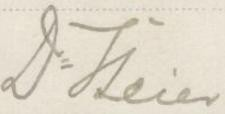 Dr= Heier